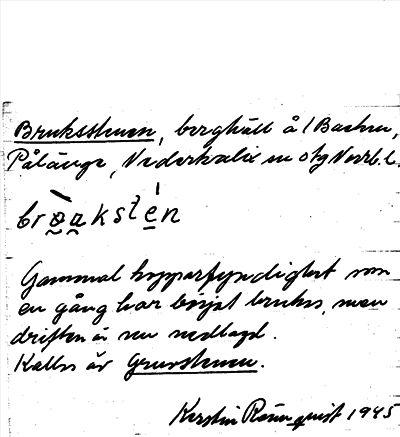 Bruksstenen, berghäll å l Backen,
Pålänge, Nederkalix sn o tg Norrb. l.
brøaksten
Gammal kopparfyndighet som
en gång har börjat brukas, men
driften är nu nedlagd.
Kallas äv Gruvstenen.
Kerstin Rönnqvist 1945